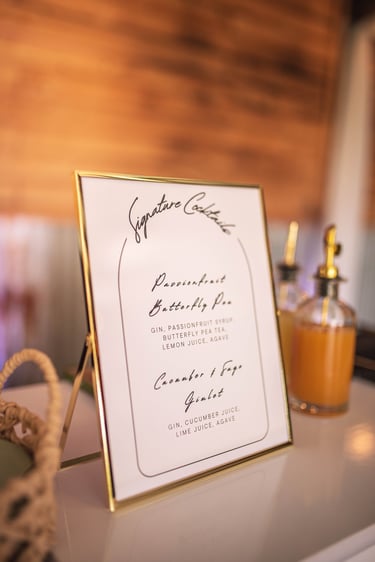 Signature Cocktails
Passionfruit
Butterfly Pea
GIN, PASSIONFRUIT SYRUP,
BUTTERFLY PEA TEA,
LEMON JUICE, AGAVE
Cucumber & Sage
Gimlet
GIN, CUCUMBER JUICE,
LIME JUICE, AGAVE